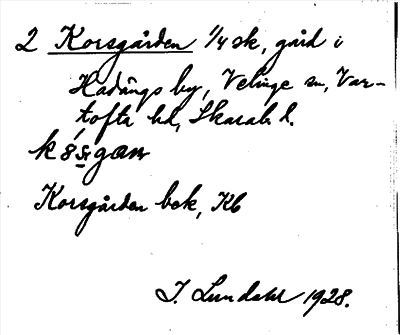 2 Korsgården 1/4 sk, gård i
Hadängs by, Velinge sn, Var-
tofta hd, Skarab. l.
Korsgården bek, Kb
I. Lundahl 1928.